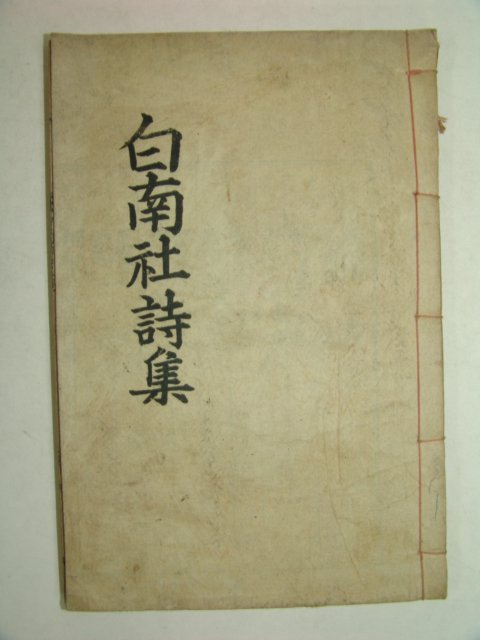 白南社詩集